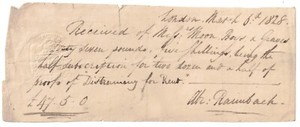 London March 6th 1828.
Received of Messrs Moon Boys & Graves
Forty seven pounds, five shillings, being the
half subscription for two dozen and a half of
proofs of Distraining for Rent
£47.5.0
Abm. Raimbach.